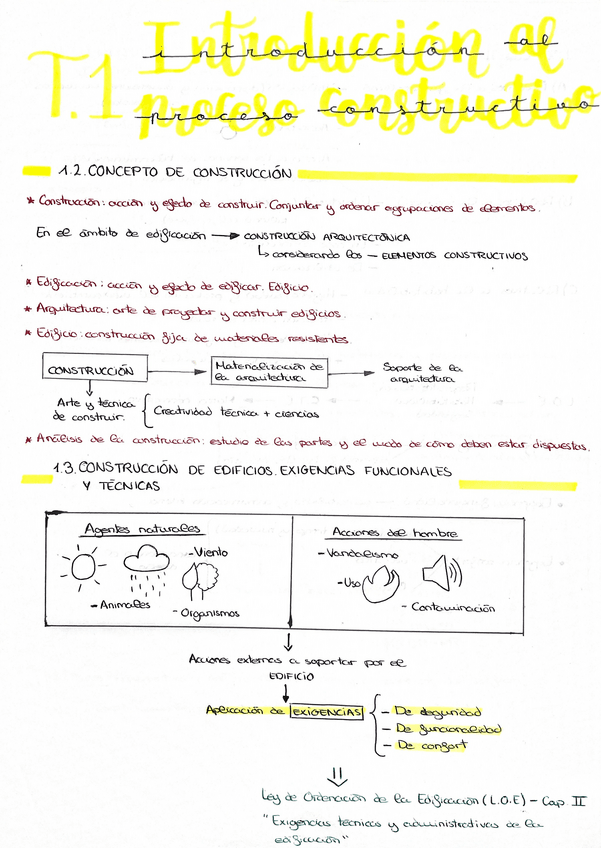 T.1 Introducción al
proceso constructivo
1.2. CONCEPTO DE CONSTRUCCIÓN
* Construcción: acción y efecto de construir. Conjuntar y ordenar agrupaciones de elementos.
En el ámbito de edificación → CONSTRUCCIÓN ARQUITECTÓNICA
↳ considerando los — ELEMENTOS CONSTRUCTIVOS
* Edificación: acción y efecto de edificar. Edificio.
* Arquitectura: arte de proyectar y construir edificios.
* Edificio: construcción fija de materiales resistentes.
CONSTRUCCIÓN → Materialización de la arquitectura → Soporte de la arquitectura
Arte y técnica de construir. { Creatividad técnica + ciencias
* Análisis de la construcción: estudio de las partes y el modo de cómo deben estar dispuestas.
1.3. CONSTRUCCIÓN DE EDIFICIOS. EXIGENCIAS FUNCIONALES
Y TÉCNICAS
Agentes naturales
- Viento
- Animales
- Organismos
Acciones del hombre
- Vandalismo
- Uso
- Contaminación
Acciones externas a soportar por el
EDIFICIO
Aplicación de EXIGENCIAS
- De seguridad
- De funcionalidad
- De confort
Ley de Ordenación de la Edificación (L.O.E) - Cap. II
"Exigencias técnicas y administrativas de la
edificación"